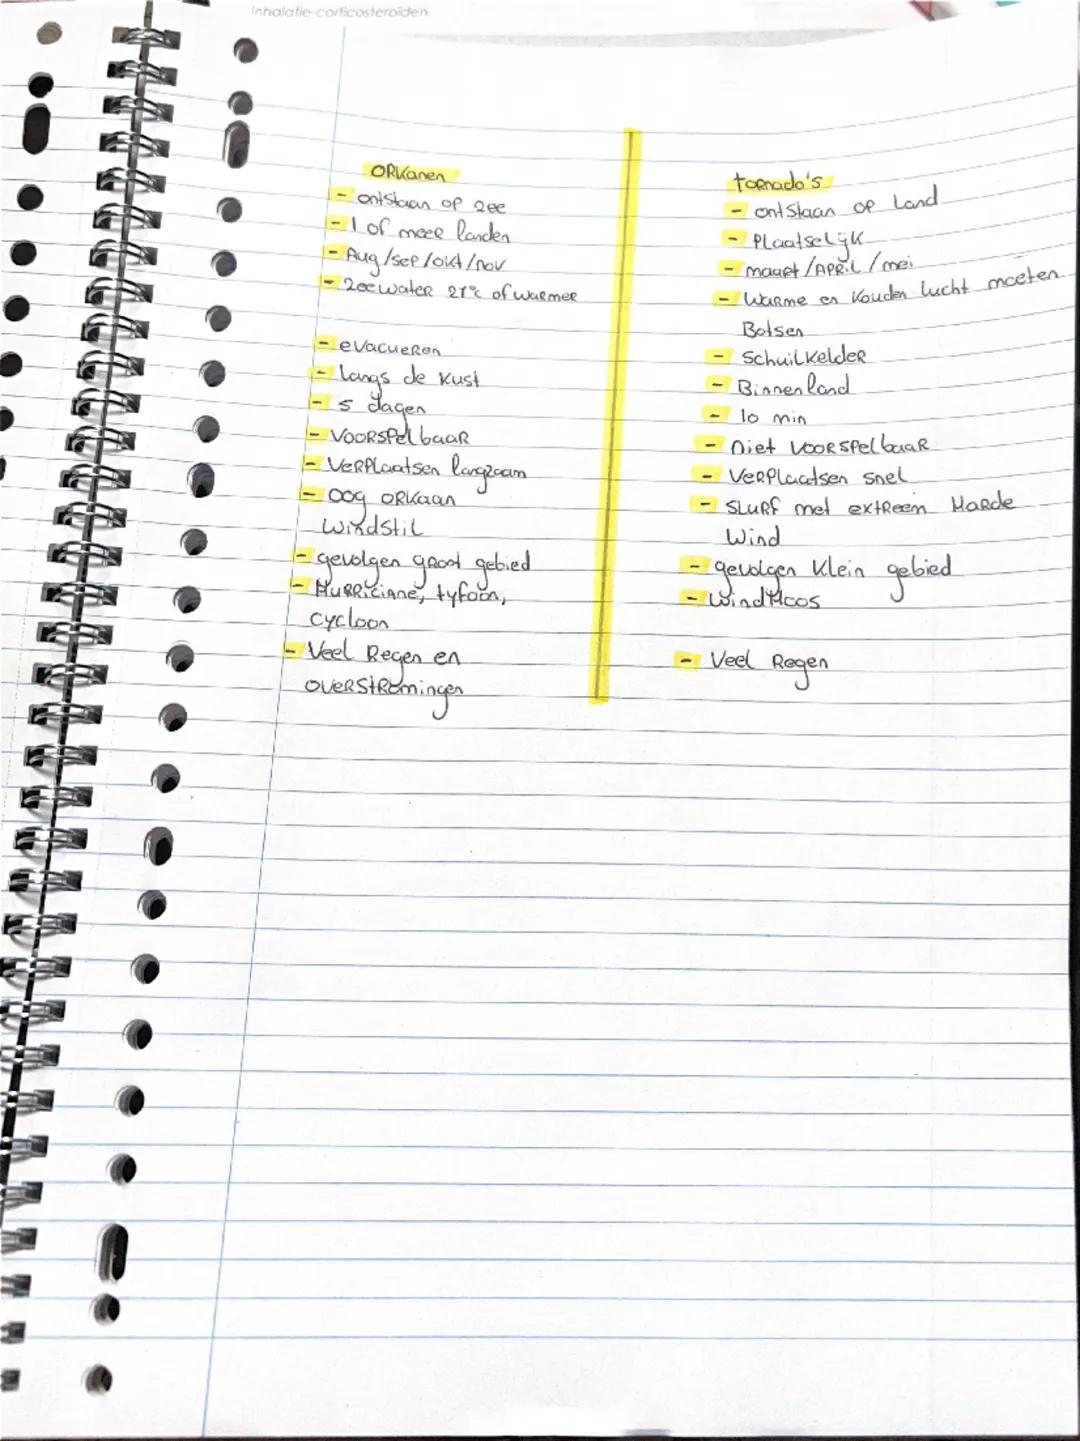 inhalatie-corticosteroïden
ORKanen
- ontstaan op zee
- 1 of meer landen
- Aug/sep/okt/nov
- zeewater 27°c of warmer
- evacueren
- langs de kust
- 5 dagen
- voorspelbaar
- verplaatsen langzaam
- oog orkaan
windstil
- gevolgen groot gebied
- Hurriciane, tyfoon,
cycloon
- Veel Regen en
overstromingen
tornado's
- ontstaan op Land
- Plaatselijk
- maart/APRil/mei
- Warme en Kouden lucht moeten
Botsen
- Schuilkelder
- Binnenland
- 10 min
- niet voorspelbaar
- verplaatsen snel
- slurf met extreem Harde
Wind
- gevolgen Klein gebied
- WindHoos
- Veel Regen